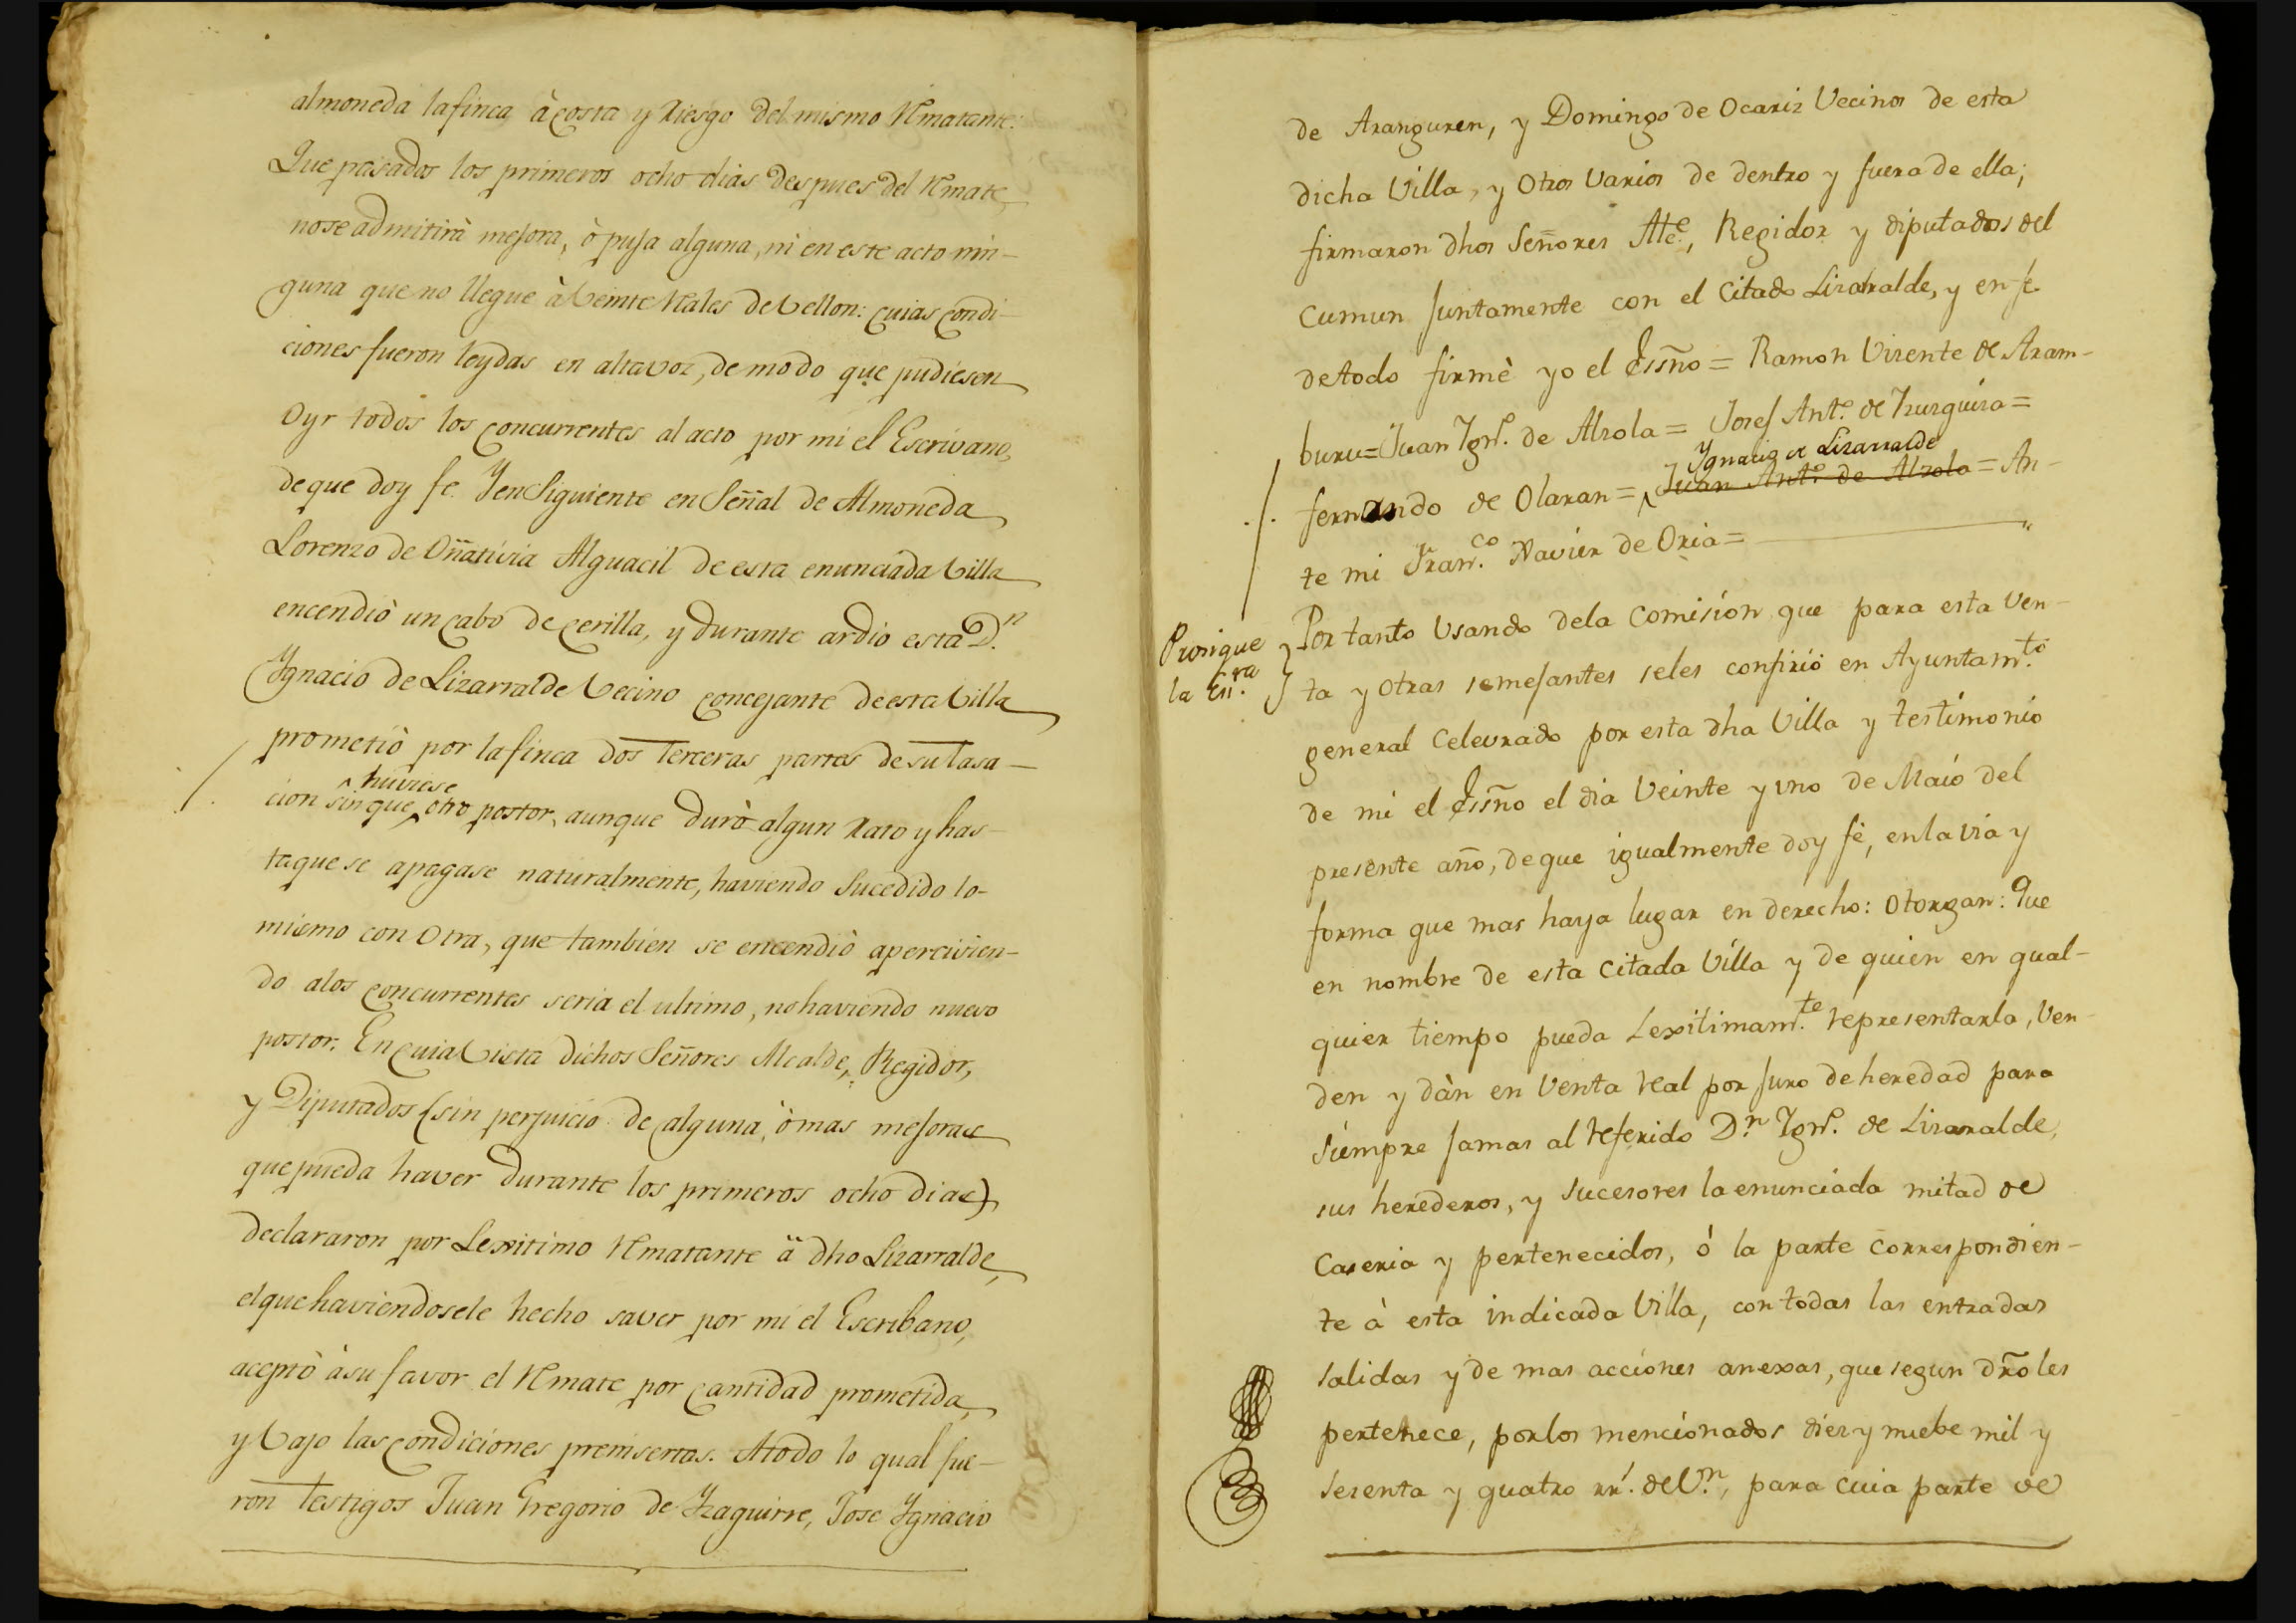 almoneda lafinca à costa y riesgo del mismo Rmatante:
Que pasados los primeros ocho dias despues del Rmate
nose admitirà mejora, ò puja alguna, ni en este acto nin-
guna que no llegue à Veinte Rales de Vellon: cuias condi-
ciones fueron leydas en alta voz, de modo que pudiesen
Oyr todos los concurrentes al acto por mi el Escrivano,
de que doy fe. Yen Siguiente en Señal de Almoneda
Lorenzo de Oñativia Alguacil de esta enunciada Villa
encendiò un cabo de cerilla, y durante ardio esta D.n
Ygnacio de Lizarralde Vecino concejante de esta Villa
prometiò por lafinca dos Terceras partes de su Tasa-
huviese
cion sin que otro postor, aunque durò algun rato y has-
taque se apagase naturalmente, haviendo Sucedido lo-
mismo con Otra, que tambien se encendiò apercivien-
do alos concurrentes seria el ultimo, no haviendo nuevo
postor. En cuia Vista dichos Señores Alcalde, Regidor,
y Diputados (sin perjuicio de alguna, ò mas mejoras
que pueda haver durante los primeros ocho dias)
declararon por Lexitimo Rmatante â dho Lizarralde,
el que haviendosele hecho saver por mi el Escribano,
aceptò à su favor el Rmate por cantidad prometida,
y Vajo las condiciones preinsertas. A todo lo qual fue-
ron Testigos Juan Gregorio de Yzaguirre, Jose Ygnacio
de Aranguren, y Domingo de Ocariz Vecinos de esta
dicha Villa, y Otros Varios de dentro y fuera de ella;
firmaron dhos Señores Alc.e, Regidor y diputados del
Cumun juntamente con el Citado Lizarralde, y en fe
de todo firmè yo el Essño = Ramon Vizente de Aram-
buru = Juan Ygn.o de Alzola = Josef Ant.o de Yzurguiza =
Ygnacio de Lizarralde
fernando de Olaran = Juan Ant.o de Alzola = An-
te mi Fran.co Xavier de Oria =
Prosigue
la Ess.ra
Por tanto Usando dela Comision que para esta Ven-
ta y Otras semejantes seles confiriò en Ayuntam.to
general Celevrado por esta dha Villa y testimonio
de mi el Essño el dia Veinte y uno de Maio del
presente año, de que igualmente doy fè, en la via y
forma que mas haya lugar en derecho: Otorgan: Que
en nombre de esta Citada Villa y de quien en qual-
quier tiempo pueda Lexitimam.te representarla, Ven-
den y dàn en Venta real por juro de heredad para
Siempre jamas al referido D.n Ygn.o de Lizarralde,
sus herederos, y sucesores la enunciada mitad de
Caseria y pertenecidos, ò la parte Correspondien-
te à esta indicada Villa, con todas las entradas
salidas y de mas acciones anexas, que segun dr̃o les
pertenece, por los mencionados diez y nuebe mil y
sesenta y quatro rr.s de V.n, para cuia parte de